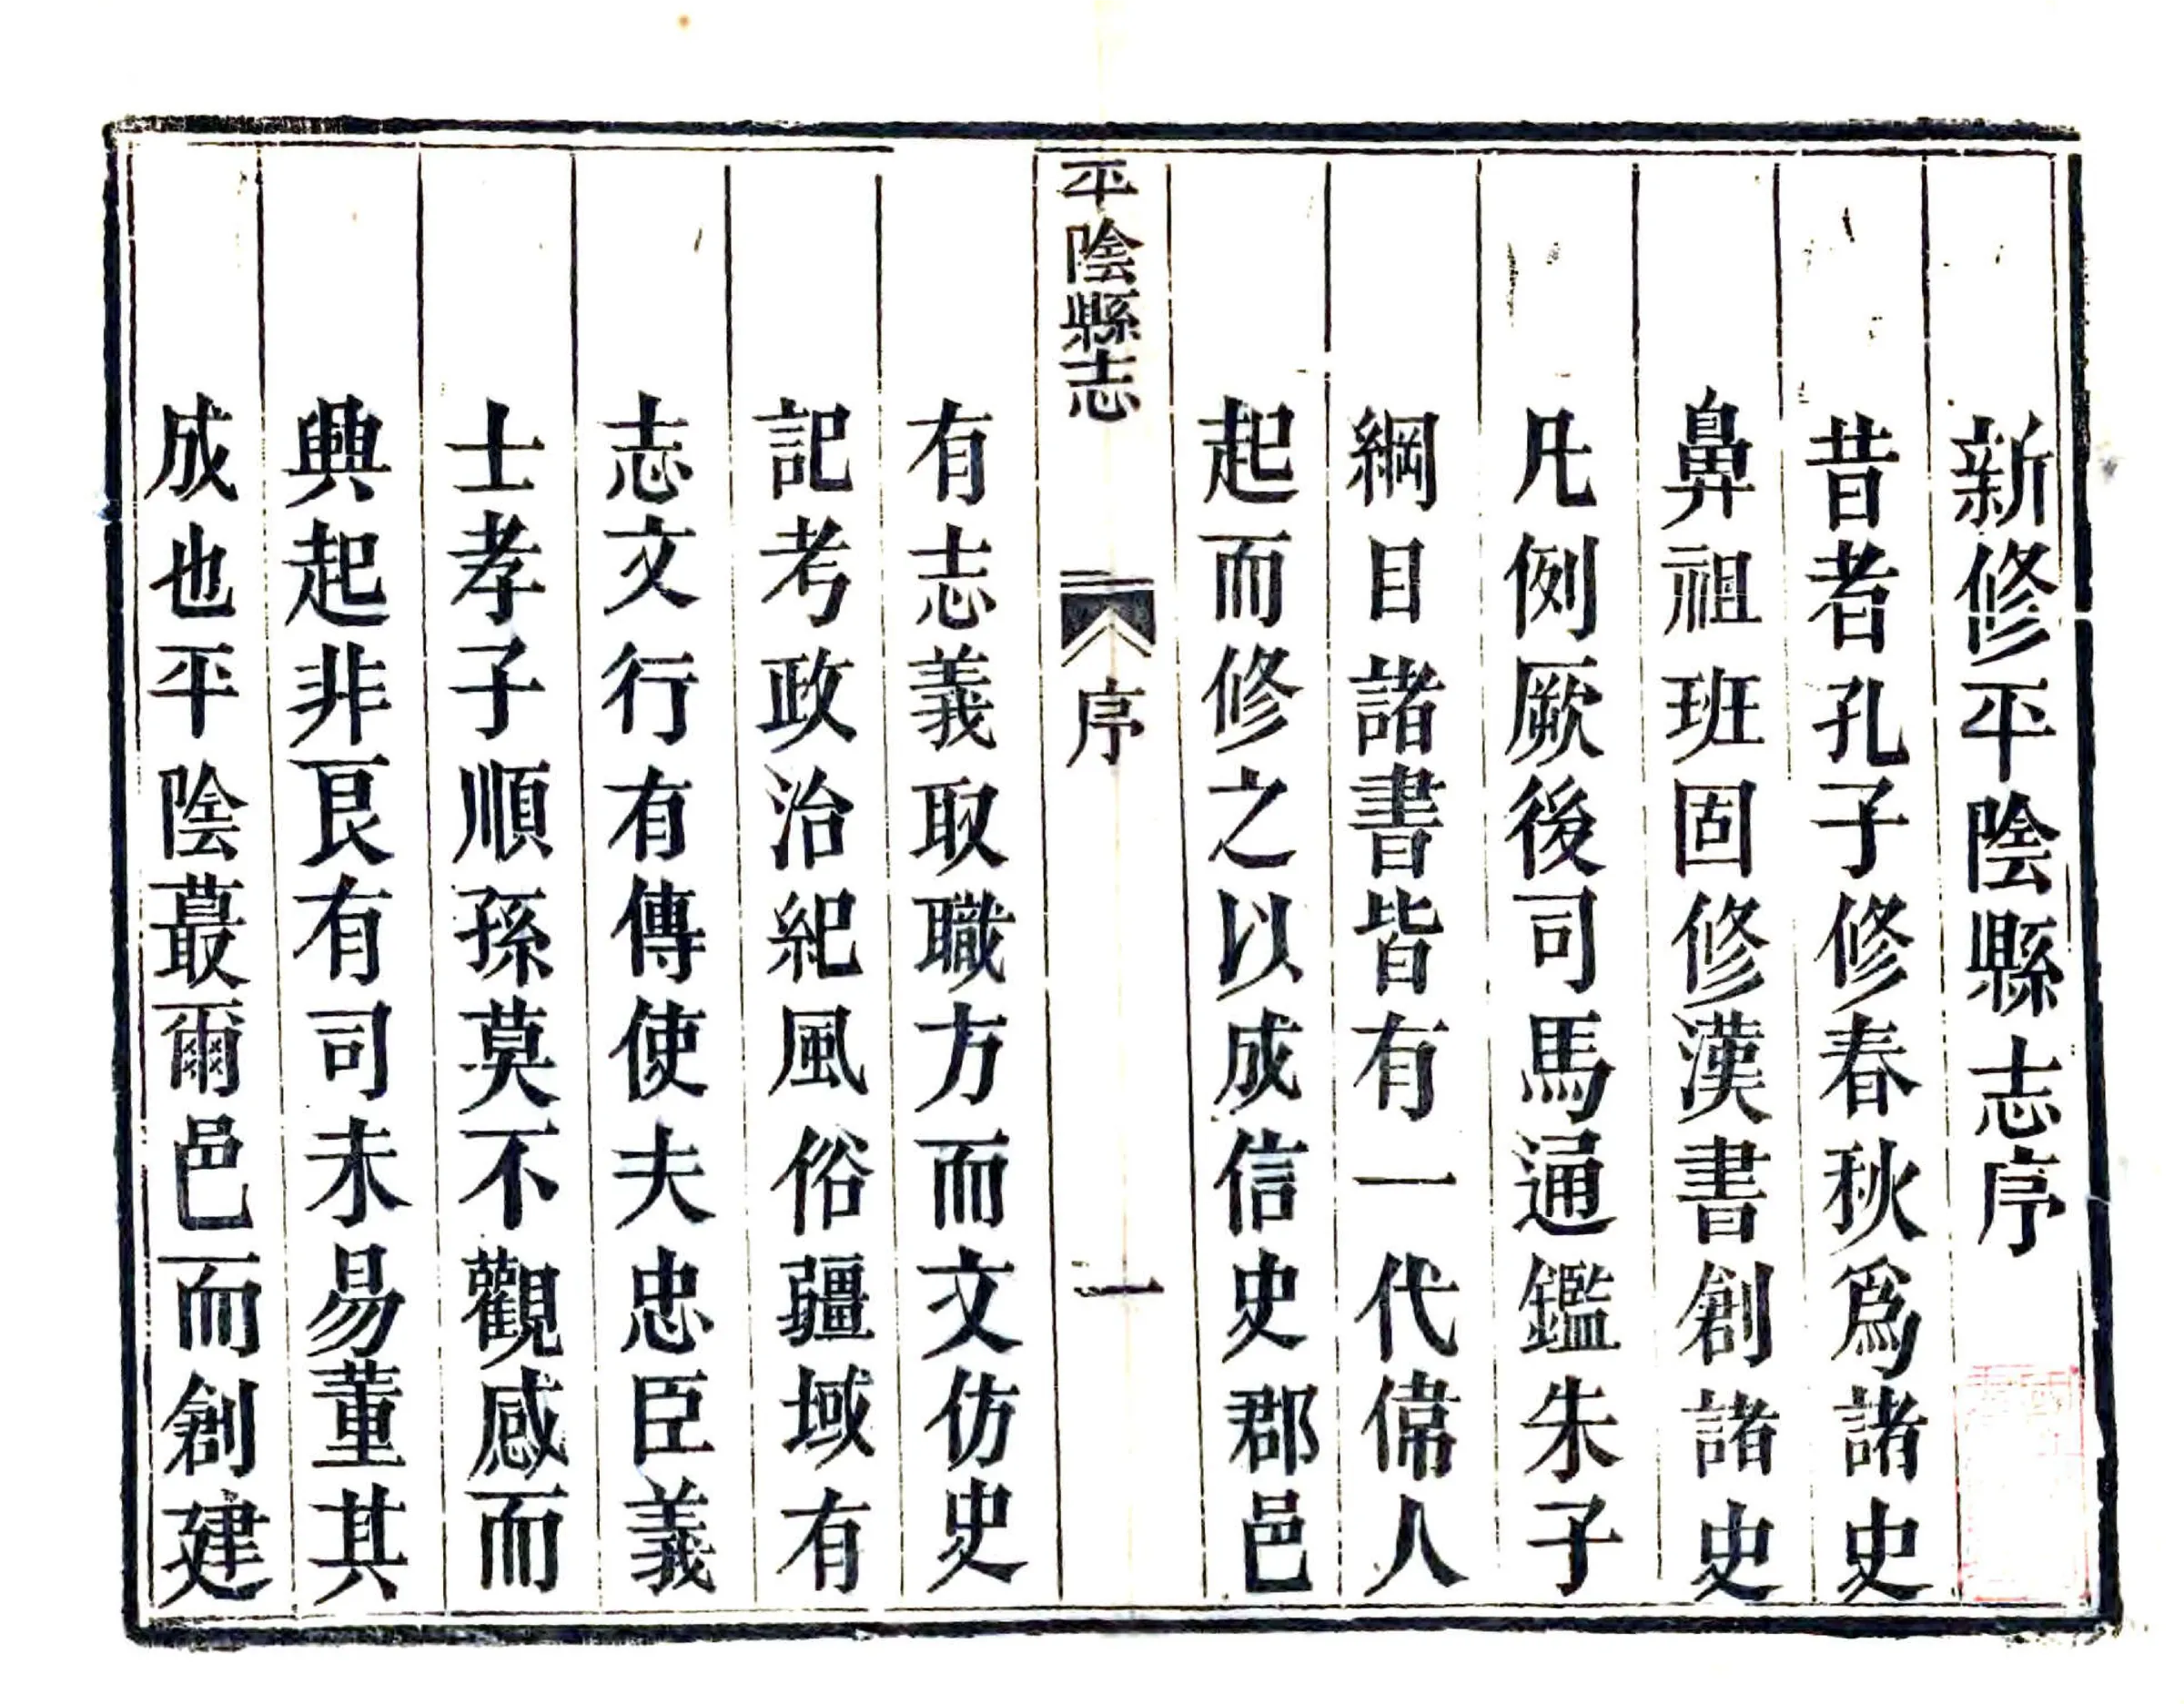 新修平陰縣志序
昔者孔子修春秋爲諸史
鼻祖班固修漢書創諸史
凡例厥後司馬通鑑朱子
綱目諸書皆有一代偉人
起而修之以成信史郡邑
平陰縣志 序 一
有志義取職方而文仿史
記考政治紀風俗疆域有
志文行有傳使夫忠臣義
士孝子順孫莫不觀感而
興起非良有司未易董其
成也平陰蕞爾邑而創建